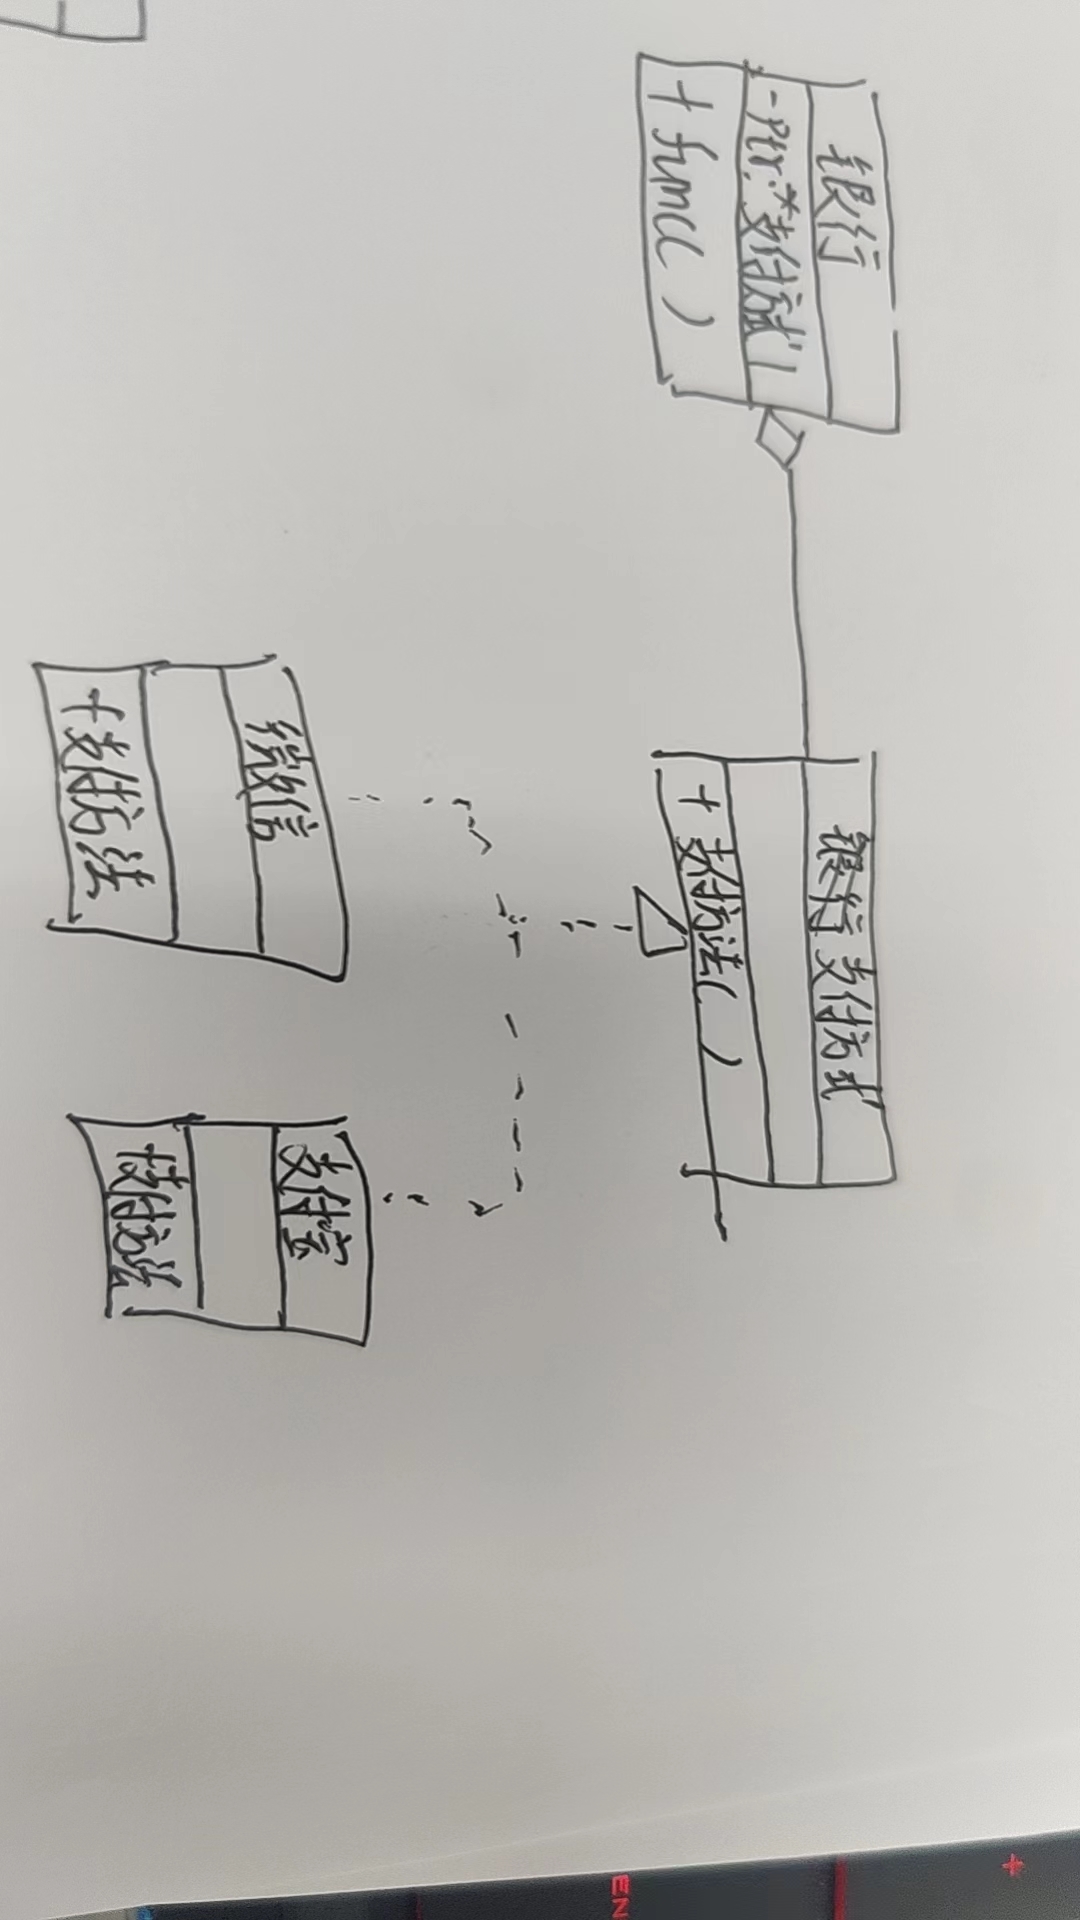 银行
-Ptr:*支付方式
+func()
银行支付方式
+支付方法()
微信
+支付方法
支付宝
+支付方法
EN
+